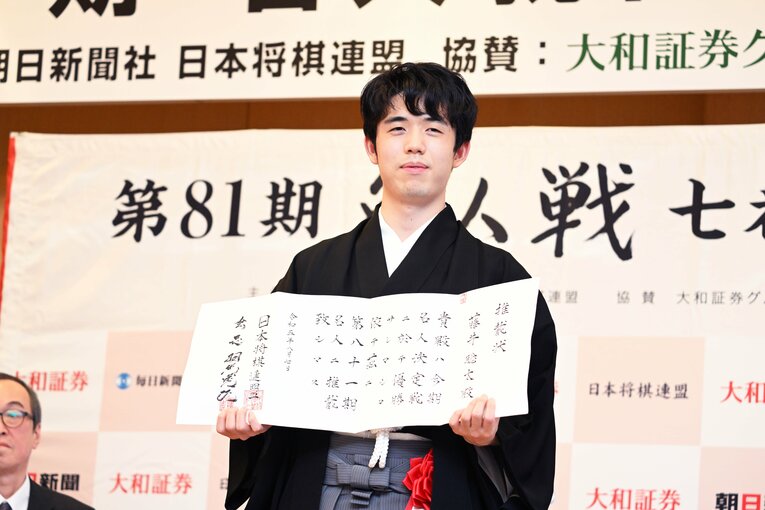 日新聞社 日本将棋連盟 協賛：大和証券グ
第81期 名人戦 七
主
連盟 協賛 大和証券グル
推戴状
藤井聡太殿
貴殿ハ今期
名人決定戦
ニ於テ優勝
依テ茲ニ
第八十一期
名人ニ推戴
致シマス
令和五年八月
日本将棋連盟
会長
大和証券 毎日新聞 日本将棋連盟 大和証券
日新聞 大和証券 日 大和証券 朝日新